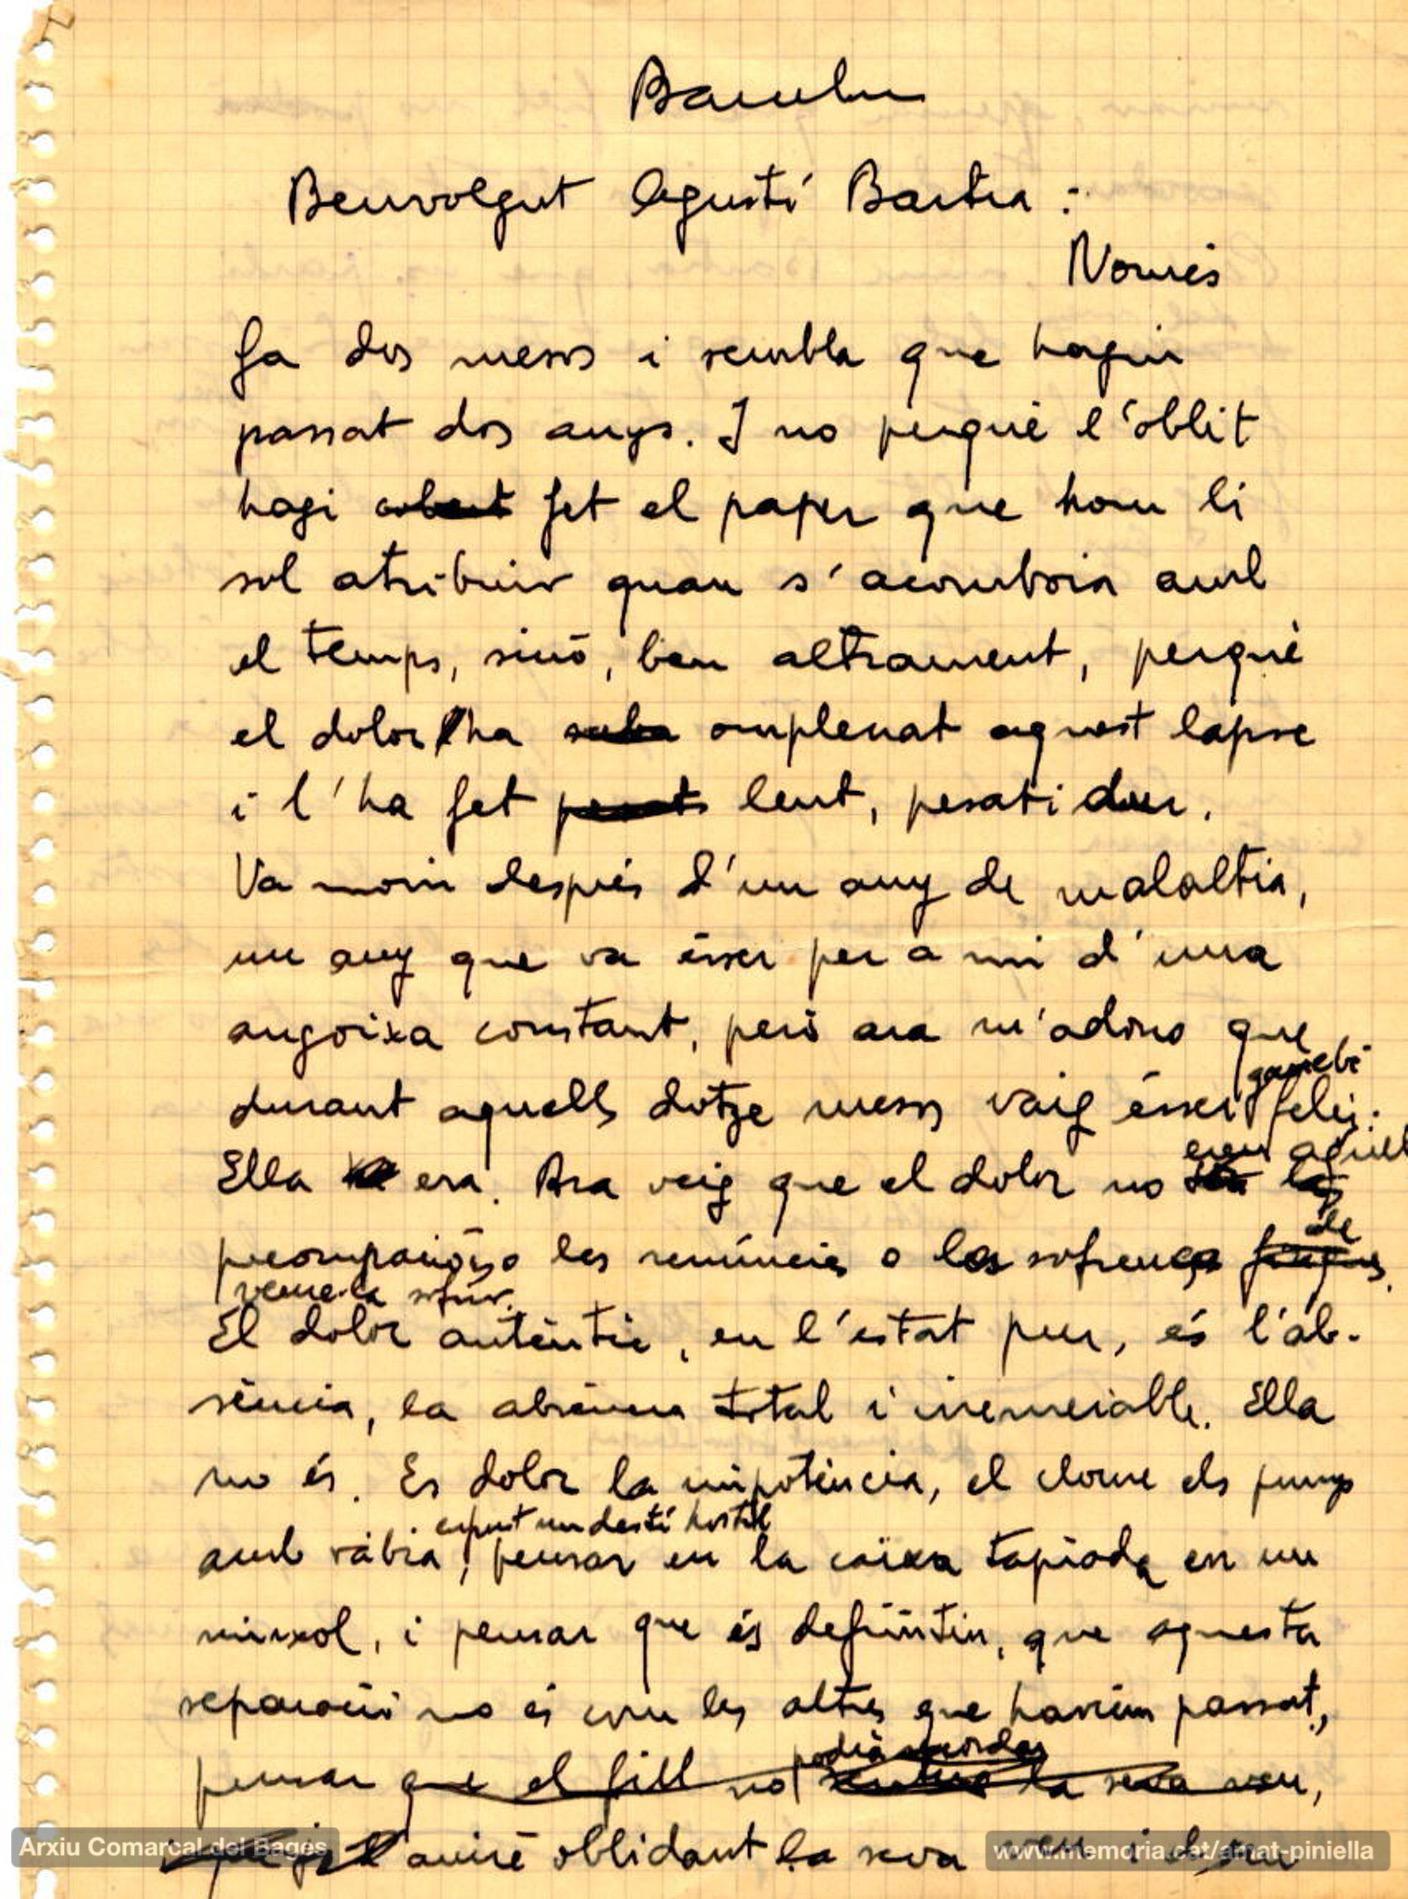 Benvolgut Agustí Bartra :
Només
fa dos mesos i sembla que hagin
passat dos anys. I no perquè l'oblit
hagi cobert fet el paper que hom li
sol atribuir quan s'acomboia amb
el temps, sinó, ben altrament, perquè
el dolor ha omplenat aquest lapse
i l'ha fet lent, pesat i dur.
Va morir després d'un any de malaltia,
un any que va ésser per a mi d'una
angoixa constant, però ara m'adono que
gairebé
durant aquells dotze mesos vaig ésser feliç.
eren aquell
Ella era. Ara veig que el dolor no les
de
preocupacions o les renúncies o la sofrença
veure-la sofrir.
El dolor autèntic, en l'estat pur, és l'ab-
sència, la absència total i irremeiable. Ella
no és. Es dolor la impotència, el cloure els punys
contra un destí hostil
amb ràbia, pensar en la caixa tapiada en un
nínxol, i pensar que és definitiu, que aquesta
separació no és com les altres que havíem passat,
podrà recordar
pensar que el fill no sentirà la seva veu,
que jo aniré oblidant la seva veu i el seu
Arxiu Comarcal del Bages
www.memoria.cat/amat-piniella